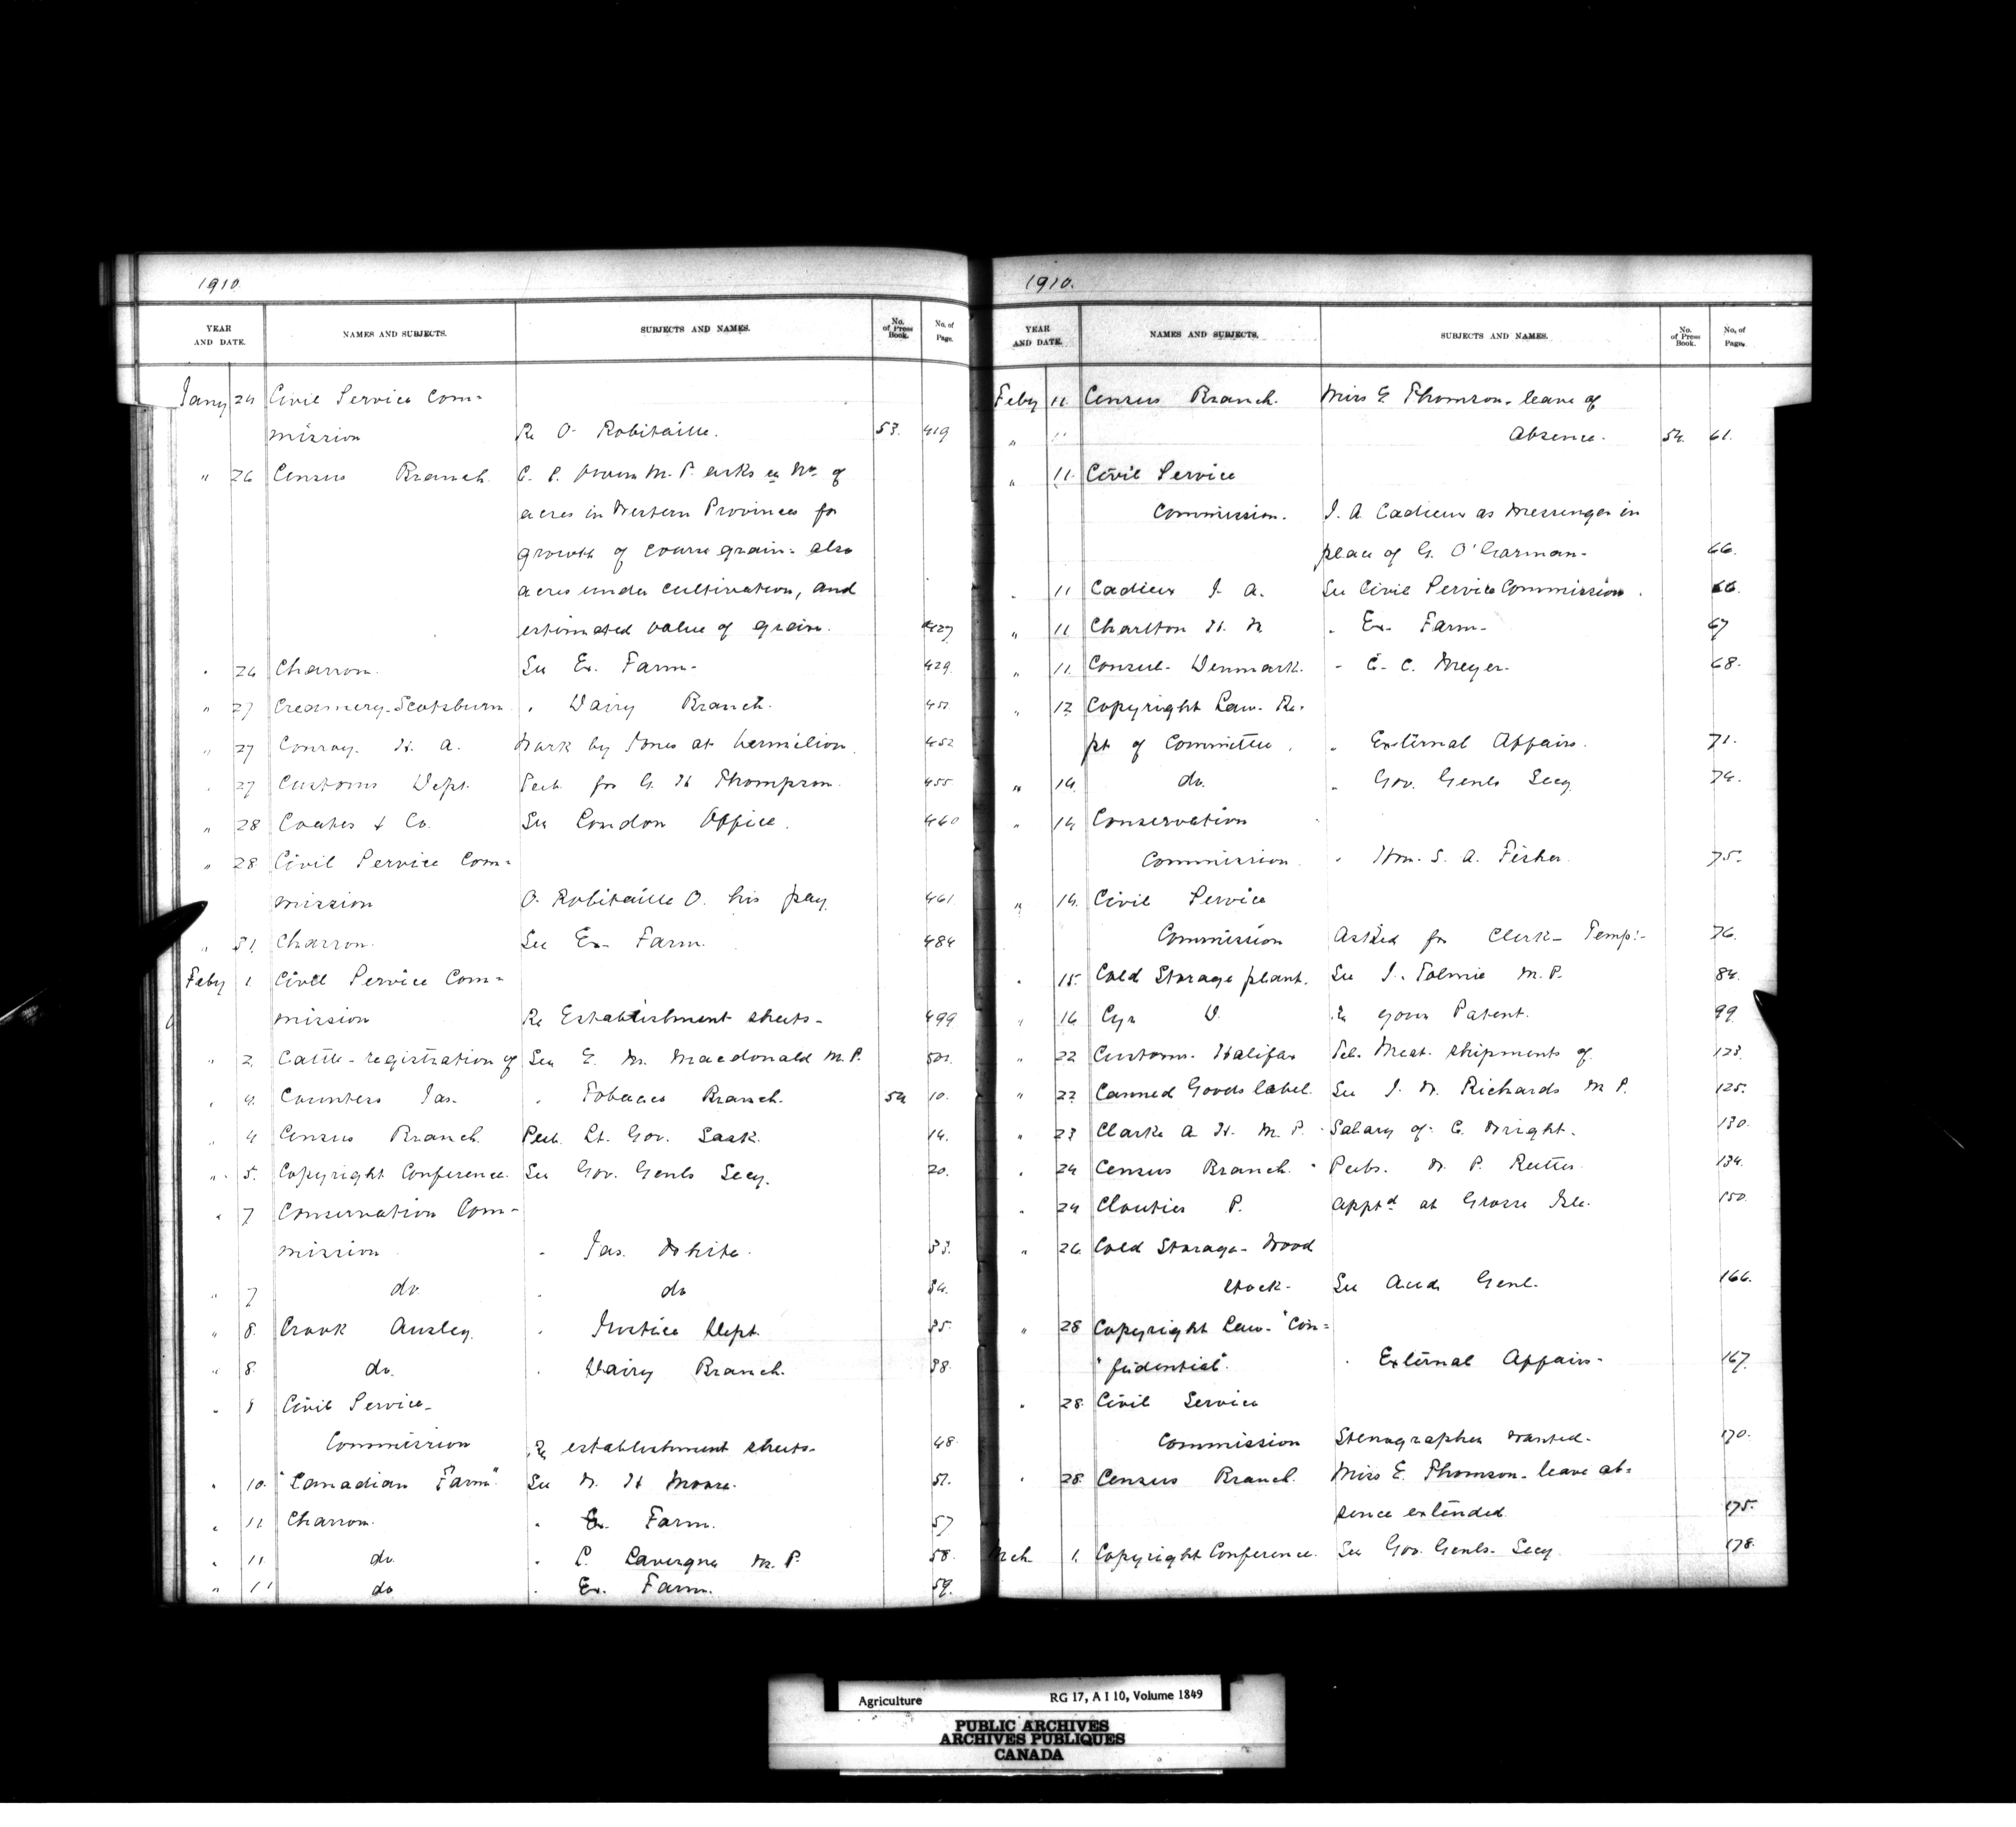 1910.
YEAR AND DATE. NAMES AND SUBJECTS. SUBJECTS AND NAMES. No. of Press Book. No. of Page.
Jany 24 Civil Service Com-
mission Re O. Robitaille. 53. 419
" 26 Census Branch. M.P. asks No. of
acres in Western Provinces for
growth of coarse grain - also
acres under cultivation, and
estimated value of grain. 427
" 26 Charron. See Ex. Farm- 429.
" 27 Creamery-Scotsburn " Dairy Branch. 451
" 27 Conroy. H. A. Work by Jones at Vermilion. 452
" 27 Customs Dept. for G. H Thompson. 455.
" 28 Coates & Co. See London Office. 460
" 28 Civil Service Com-
mission O. Robitaille O. his pay 461.
" 31. Charron. See Ex- Farm. 484
Feby 1 Civil Service Com-
mission Re Establishment sheets- 499
" 2. Cattle-registration of See E. M. Macdonald M.P. 501.
" 4. Counters Jas. " Tobacco Branch. 54 10.
" 4 Census Branch. Pub. Lt. Gov. Sask. 14.
" 5. Copyright Conference. See Gov. Genls Secy. 20.
" 7 Conservation Com-
mission " Jas. White. 33.
" 7 do " do 34.
" 8. Crook Ansley. " Justice Dept. 35.
" 8. do. " Dairy Branch. 38.
" 8 Civil Service-
Commission Re establishment sheets- 48.
" 10. "Canadian Farm" See W. H Moore. 51.
" 11 Charron. " Ex. Farm. 57
" 11 do. " L. Lavergne M.P. 58.
" 11 do " Ex. Farm. 59.
1910.
YEAR AND DATE. NAMES AND SUBJECTS. SUBJECTS AND NAMES. No. of Press Book. No. of Page.
Feby 11. Census Branch. Miss E Thomson. leave of
" " Absence. 54. 61.
" 11. Civil Service
Commission. J. A. Cadieux as Messenger in
place of G. O'Garman- 66.
" 11 Cadieux J. A. See Civil Service Commission. 66.
" 11 Charlton H. W " Ex- Farm- 67
" 11. Consul- Denmark. " C. C. Meyer. 68.
" 12 Copyright Law. Re-
pt of Committee. " External Affairs. 71.
" 14. do. " Gov. Genls Secy 74.
" 14 Conservation
Commission. " Hon. S. A. Fisher. 75.
" 14. Civil Service
Commission Asked for Clerk- Temp:- 76.
" 15. Cold Storage plant. See J. Tolmie M.P. 84.
" 16 Cyr D. Re your Patent. 99.
" 22 Customs. Halifax Tel. Meat. shipments of 123.
" 22 Canned Goods label. See J. W. Richards M P. 125.
" 23 Clarke A H. M.P. Salary of C. Wright. 130.
" 24 Census Branch. Pubs. W. P. Rutter. 134.
" 24 Cloutier P. appt'd at Grosse Isle. 150.
" 26 Cold Storage- Wood
stock- See Aud. Genl. 166.
" 28 Copyright Law- "Con-
"fidential". " External Affairs- 167.
" 28. Civil Service
Commission Stenographer wanted. 170.
" 28. Census Branch. Miss E. Thomson- leave ab-
sence extended 175.
Mch 1. Copyright Conference. See Gov. Genls. Secy 178.
Agriculture RG 17, A I 10, Volume 1849
PUBLIC ARCHIVES
ARCHIVES PUBLIQUES
CANADA